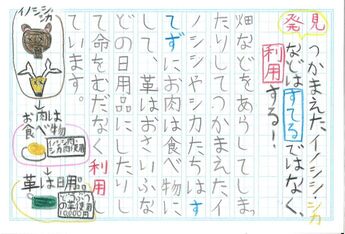 発見
つかまえた、イノシシ、シカ
などはすてるではなく、
利用する！
畑などをあらしてしまっ
たりしてつかまえたイ
ノシシやシカたちはす
てずにお肉は食べ物に
して革はおさいふな
どの日用品にしたりし
て命をむだなく利用し
ています。
イノシシ
お肉は
食べ物
革は日用品
10,000円